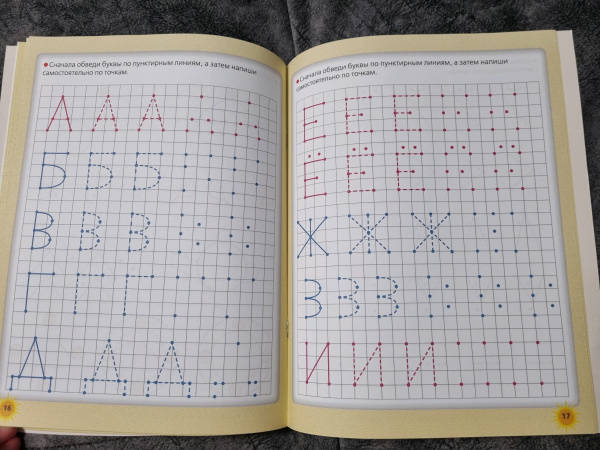 Сначала обведи буквы по пунктирным линиям, а затем напиши
самостоятельно по точкам.
А А А
Б Б Б
В В В
Г Г Г
Д Д Д
16
Сначала обведи буквы по пунктирным линиям, а затем напиши
самостоятельно по точкам.
Е Е Е
Ё Ё Ё
Ж Ж Ж
З З З
И И И
17